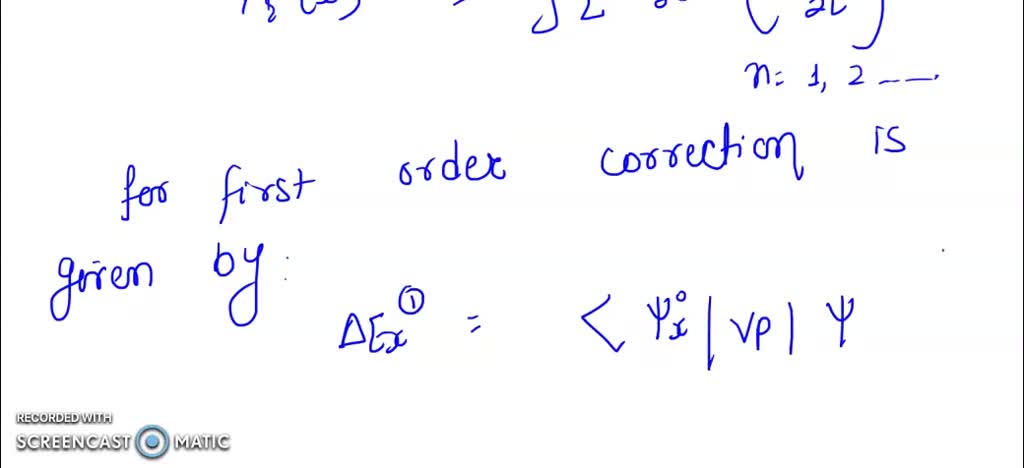 n= 1, 2 -----.
for first order correction is
given by:
ΔEx^① = < Ψx° | VP | Ψ
RECORDED WITH
SCREENCAST MATIC